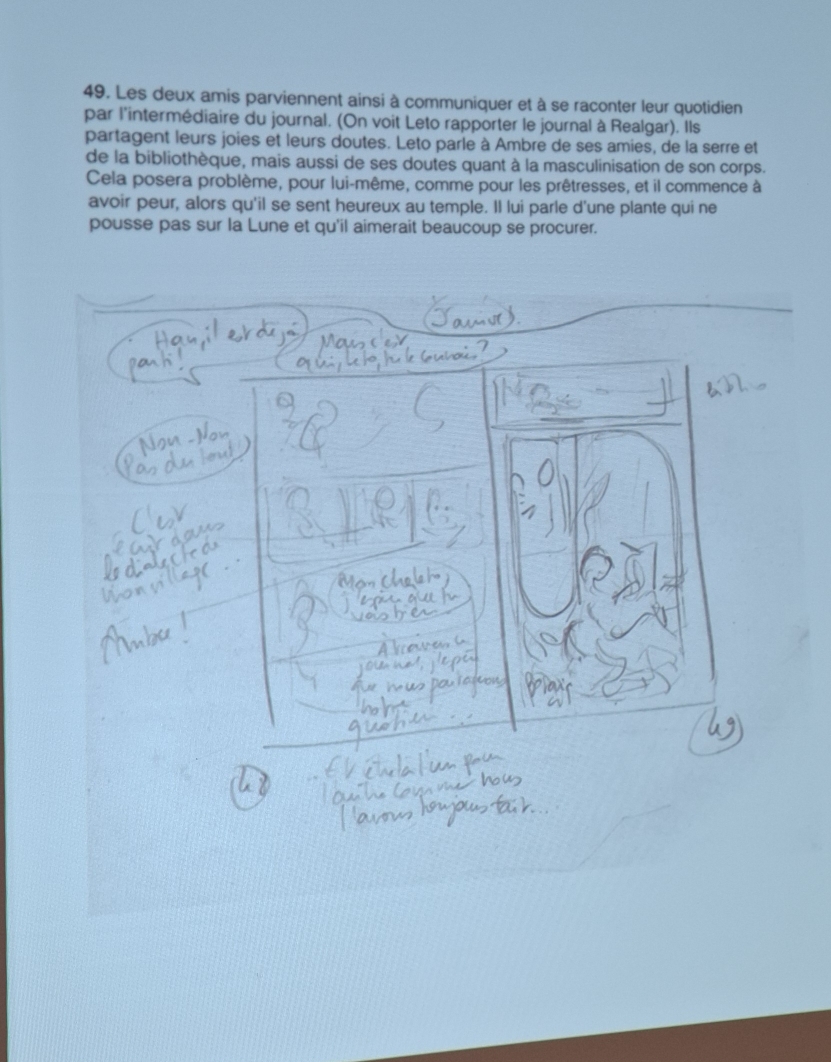 49. Les deux amis parviennent ainsi à communiquer et à se raconter leur quotidien
par l'intermédiaire du journal. (On voit Leto rapporter le journal à Realgar). Ils
partagent leurs joies et leurs doutes. Leto parle à Ambre de ses amies, de la serre et
de la bibliothèque, mais aussi de ses doutes quant à la masculinisation de son corps.
Cela posera problème, pour lui-même, comme pour les prêtresses, et il commence à
avoir peur, alors qu'il se sent heureux au temple. Il lui parle d'une plante qui ne
pousse pas sur la Lune et qu'il aimerait beaucoup se procurer.
Han, il est déjà
parti!
Mais c'est
qui, Leto, tu le connais?
Non-Non
Pas du tout!
C'est
écrit dans
le dialecte de
mon village...
Ambre!
j'espère que tu
vas bien
À travers ce
journal, j'espère
que nous partagerons
notre
quotidien...
48
49
...Et être là l'un pour
l'autre comme nous
l'avons toujours fait...